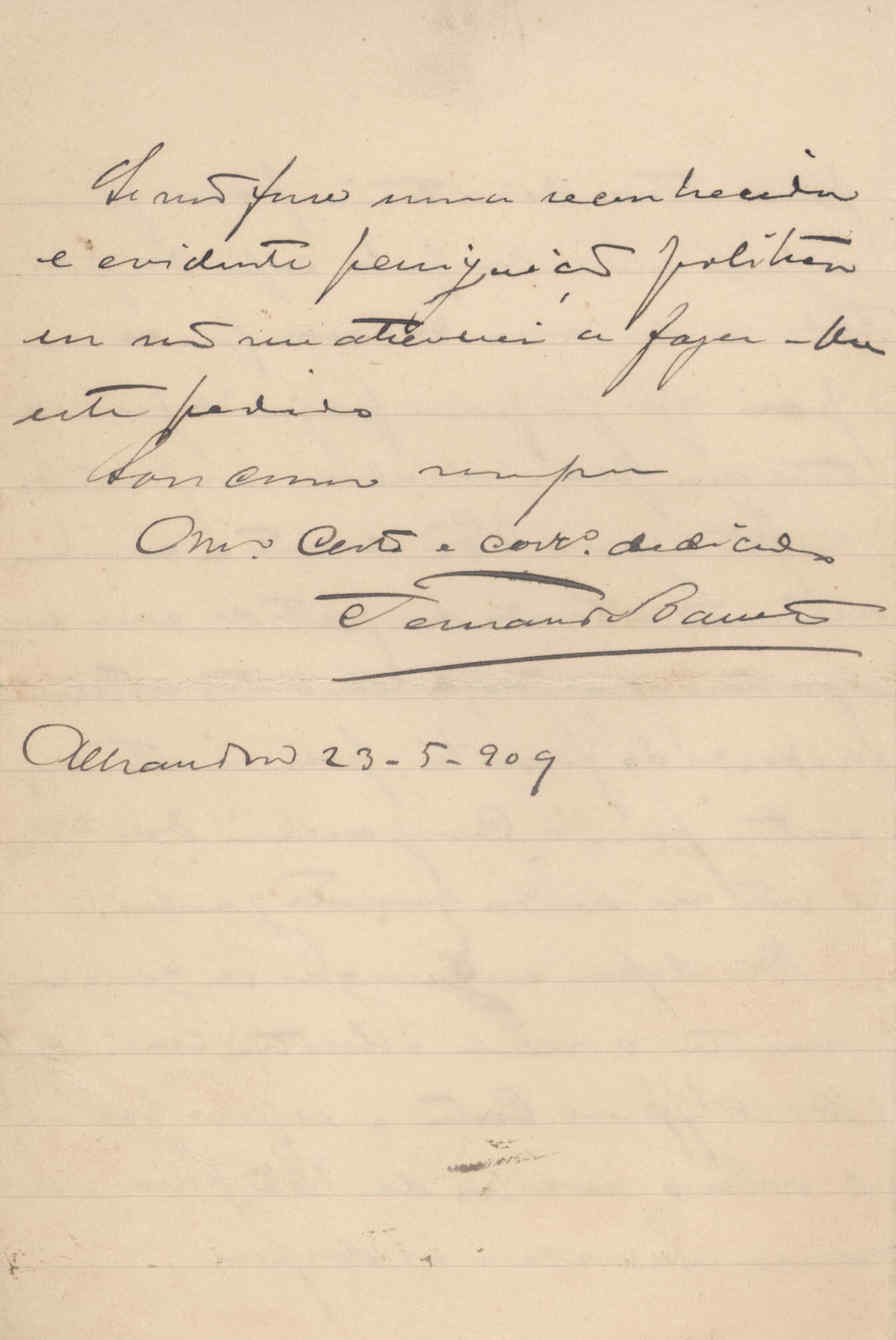 Se não fosse uma reconhecida
e evidente perseguição politica
eu não me atreveria a fazer-lhe
este pedido
Sou como sempre
Am.º Certo e corr.º dedicado
Fernando Barreto
23-5-909